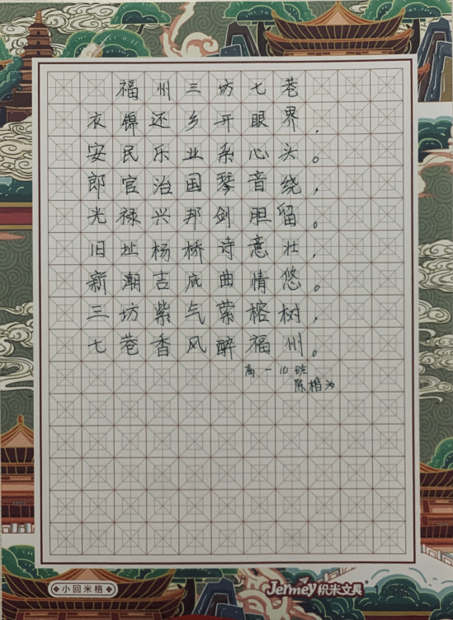 福州三坊七巷
衣锦还乡开眼界，
安民乐业系心头。
郎官治国琴音绕，
光禄兴邦剑胆留。
旧址杨桥诗意壮，
新潮吉庇曲情悠。
三坊紫气萦榕树，
七巷香风醉福州。
高一10班
陈楷
小回米格
Jermey积米文具